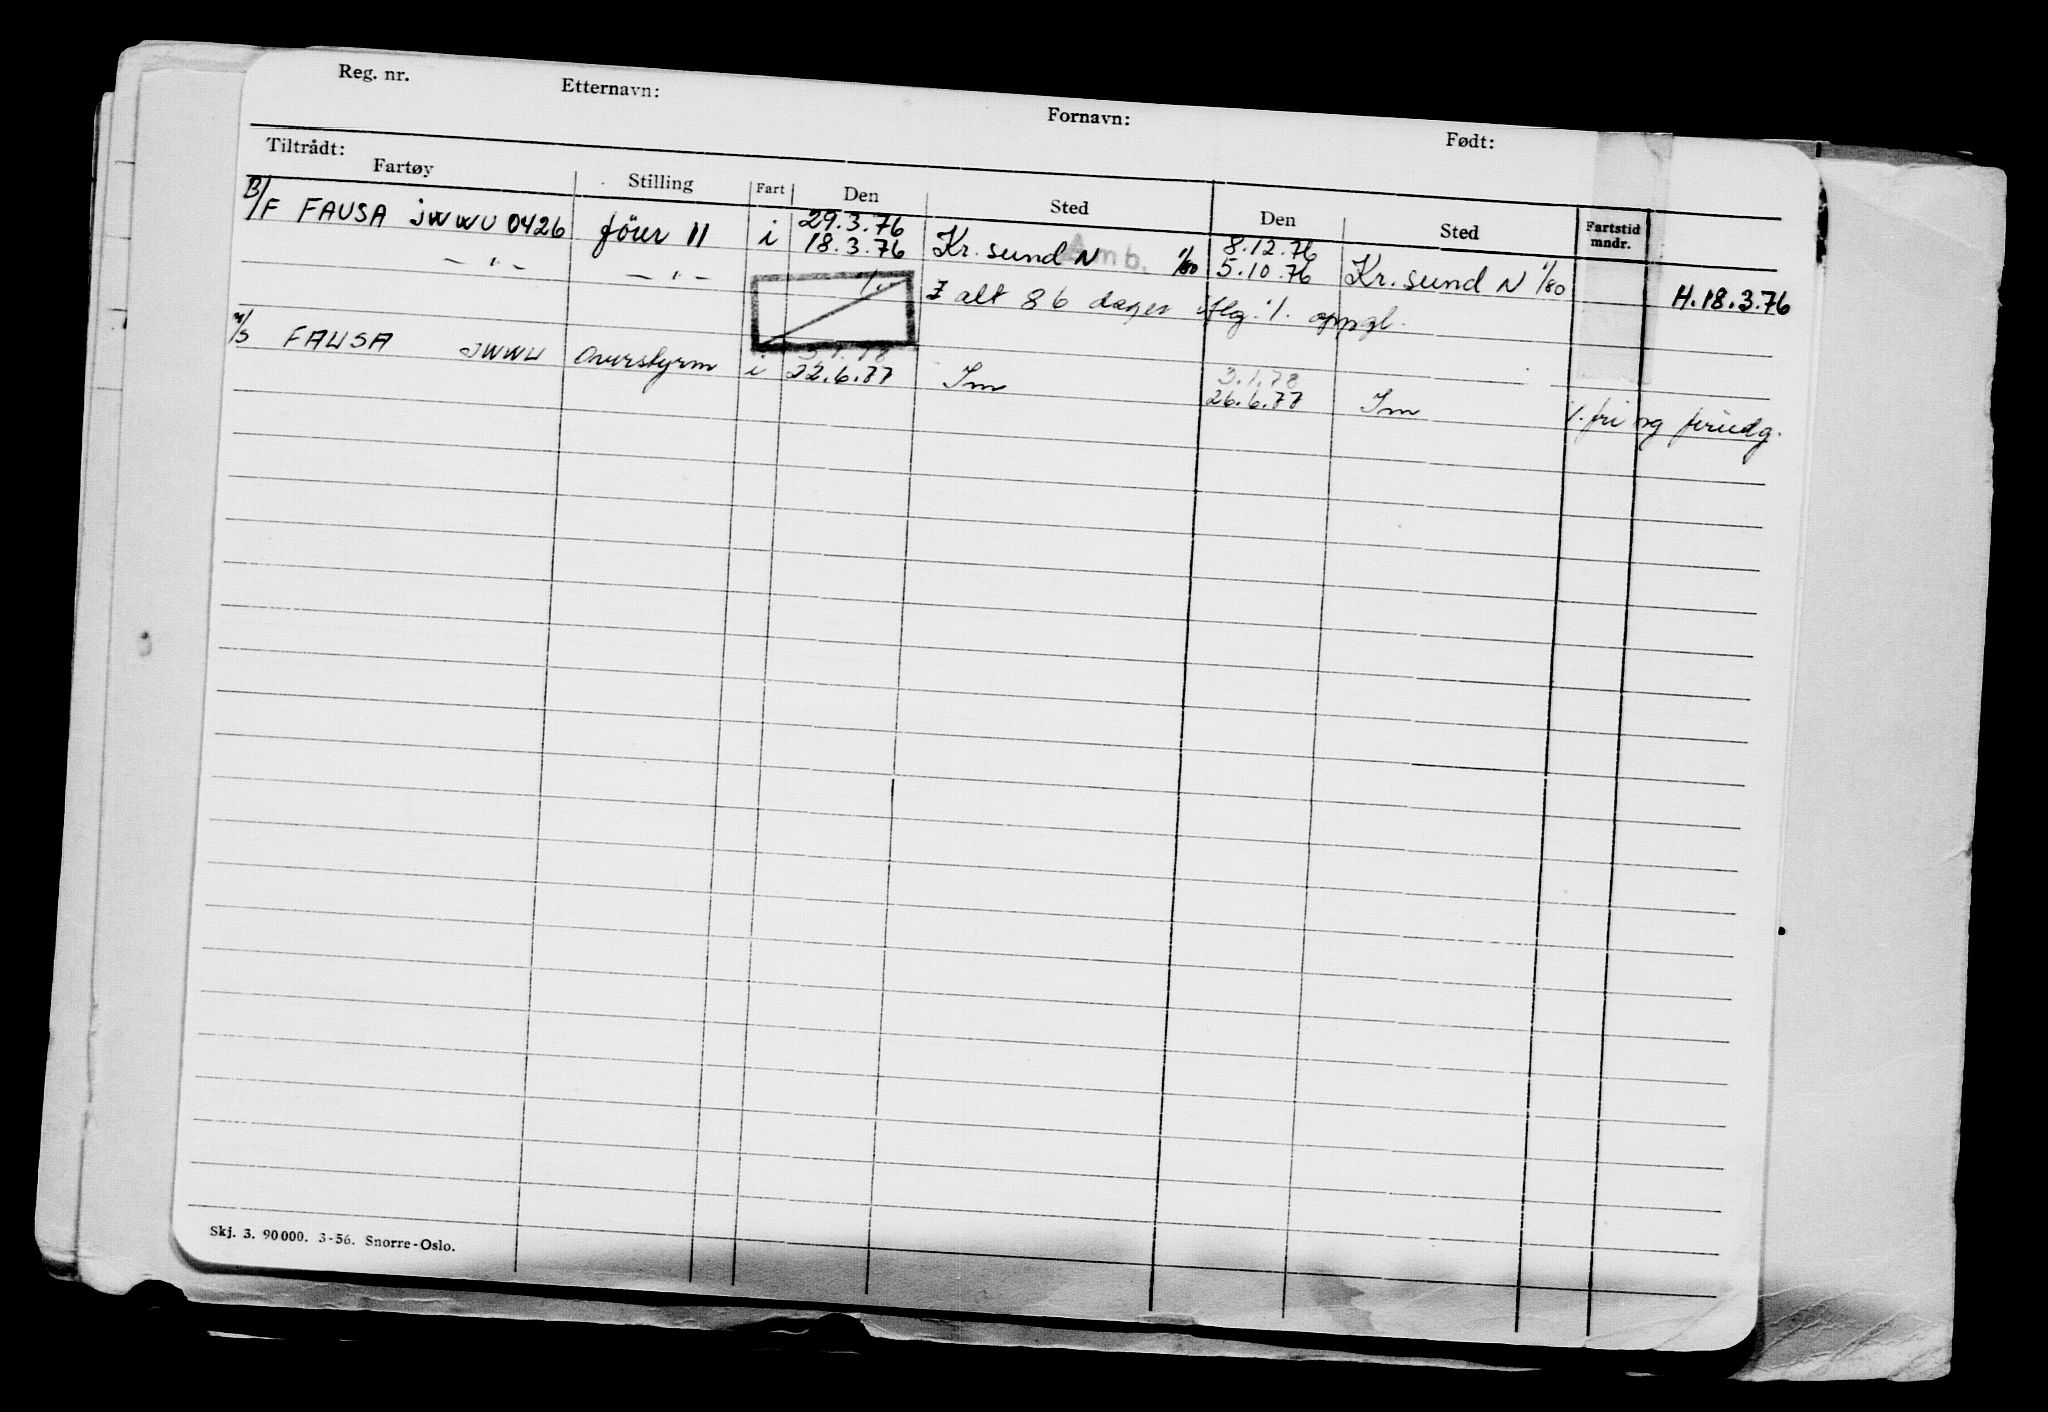 Reg. nr. Etternavn: Fornavn: Født:
Tiltrådt:
Fartøy Stilling Fart Den Sted Den Sted Fartstid mndr.
B/F FAUSA JWWU 0426 fører II i 29.3.76 Kr.sund N 1/80 8.12.76 Kr.sund N 1/80
18.3.76 Amb. 5.10.76 H.18.3.76
— " — — " — I alt 86 dager iflg. oppgl.
M/S FAUSA JWWU Overstyrm i 22.6.77 Im 3.1.78 Im
26.6.77 fri og feriedg.
Skj. 3. 90000. 3-56. Snorre-Oslo.